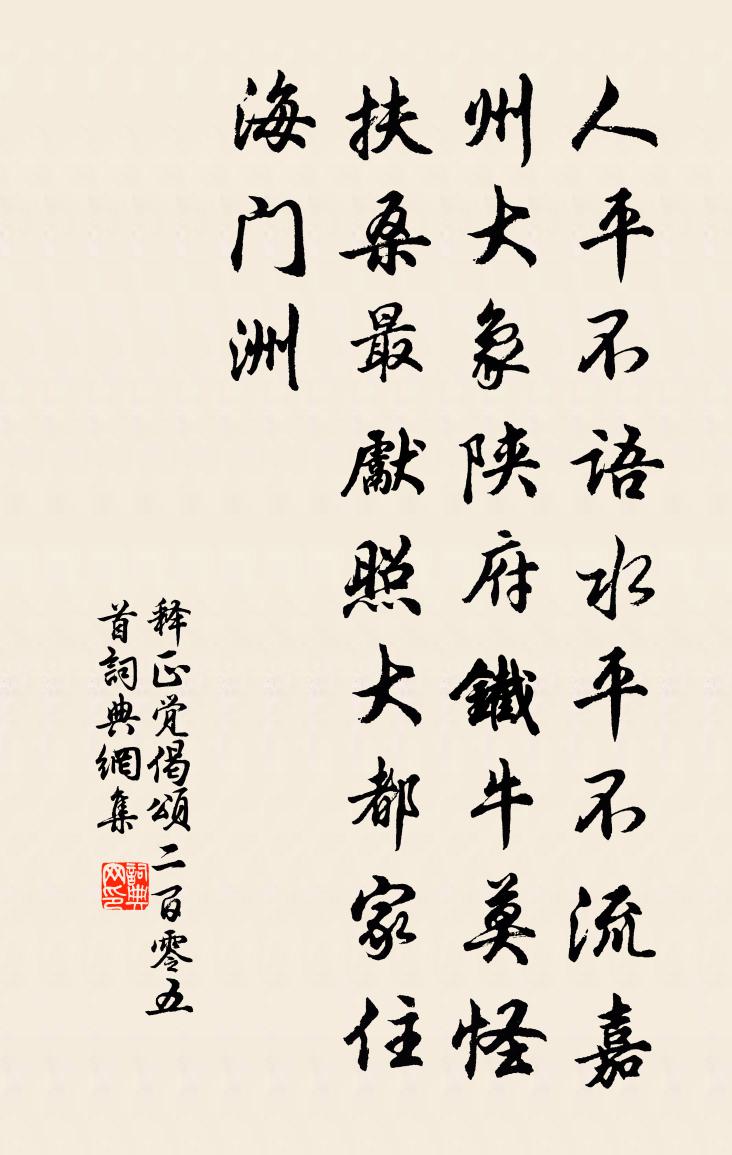 人平不语水平不流嘉
州大象陕府鐵牛莫怪
扶桑最獻照大都家住
海门洲
释正觉偈頌二百零五
首詞典網集
詞典
网印